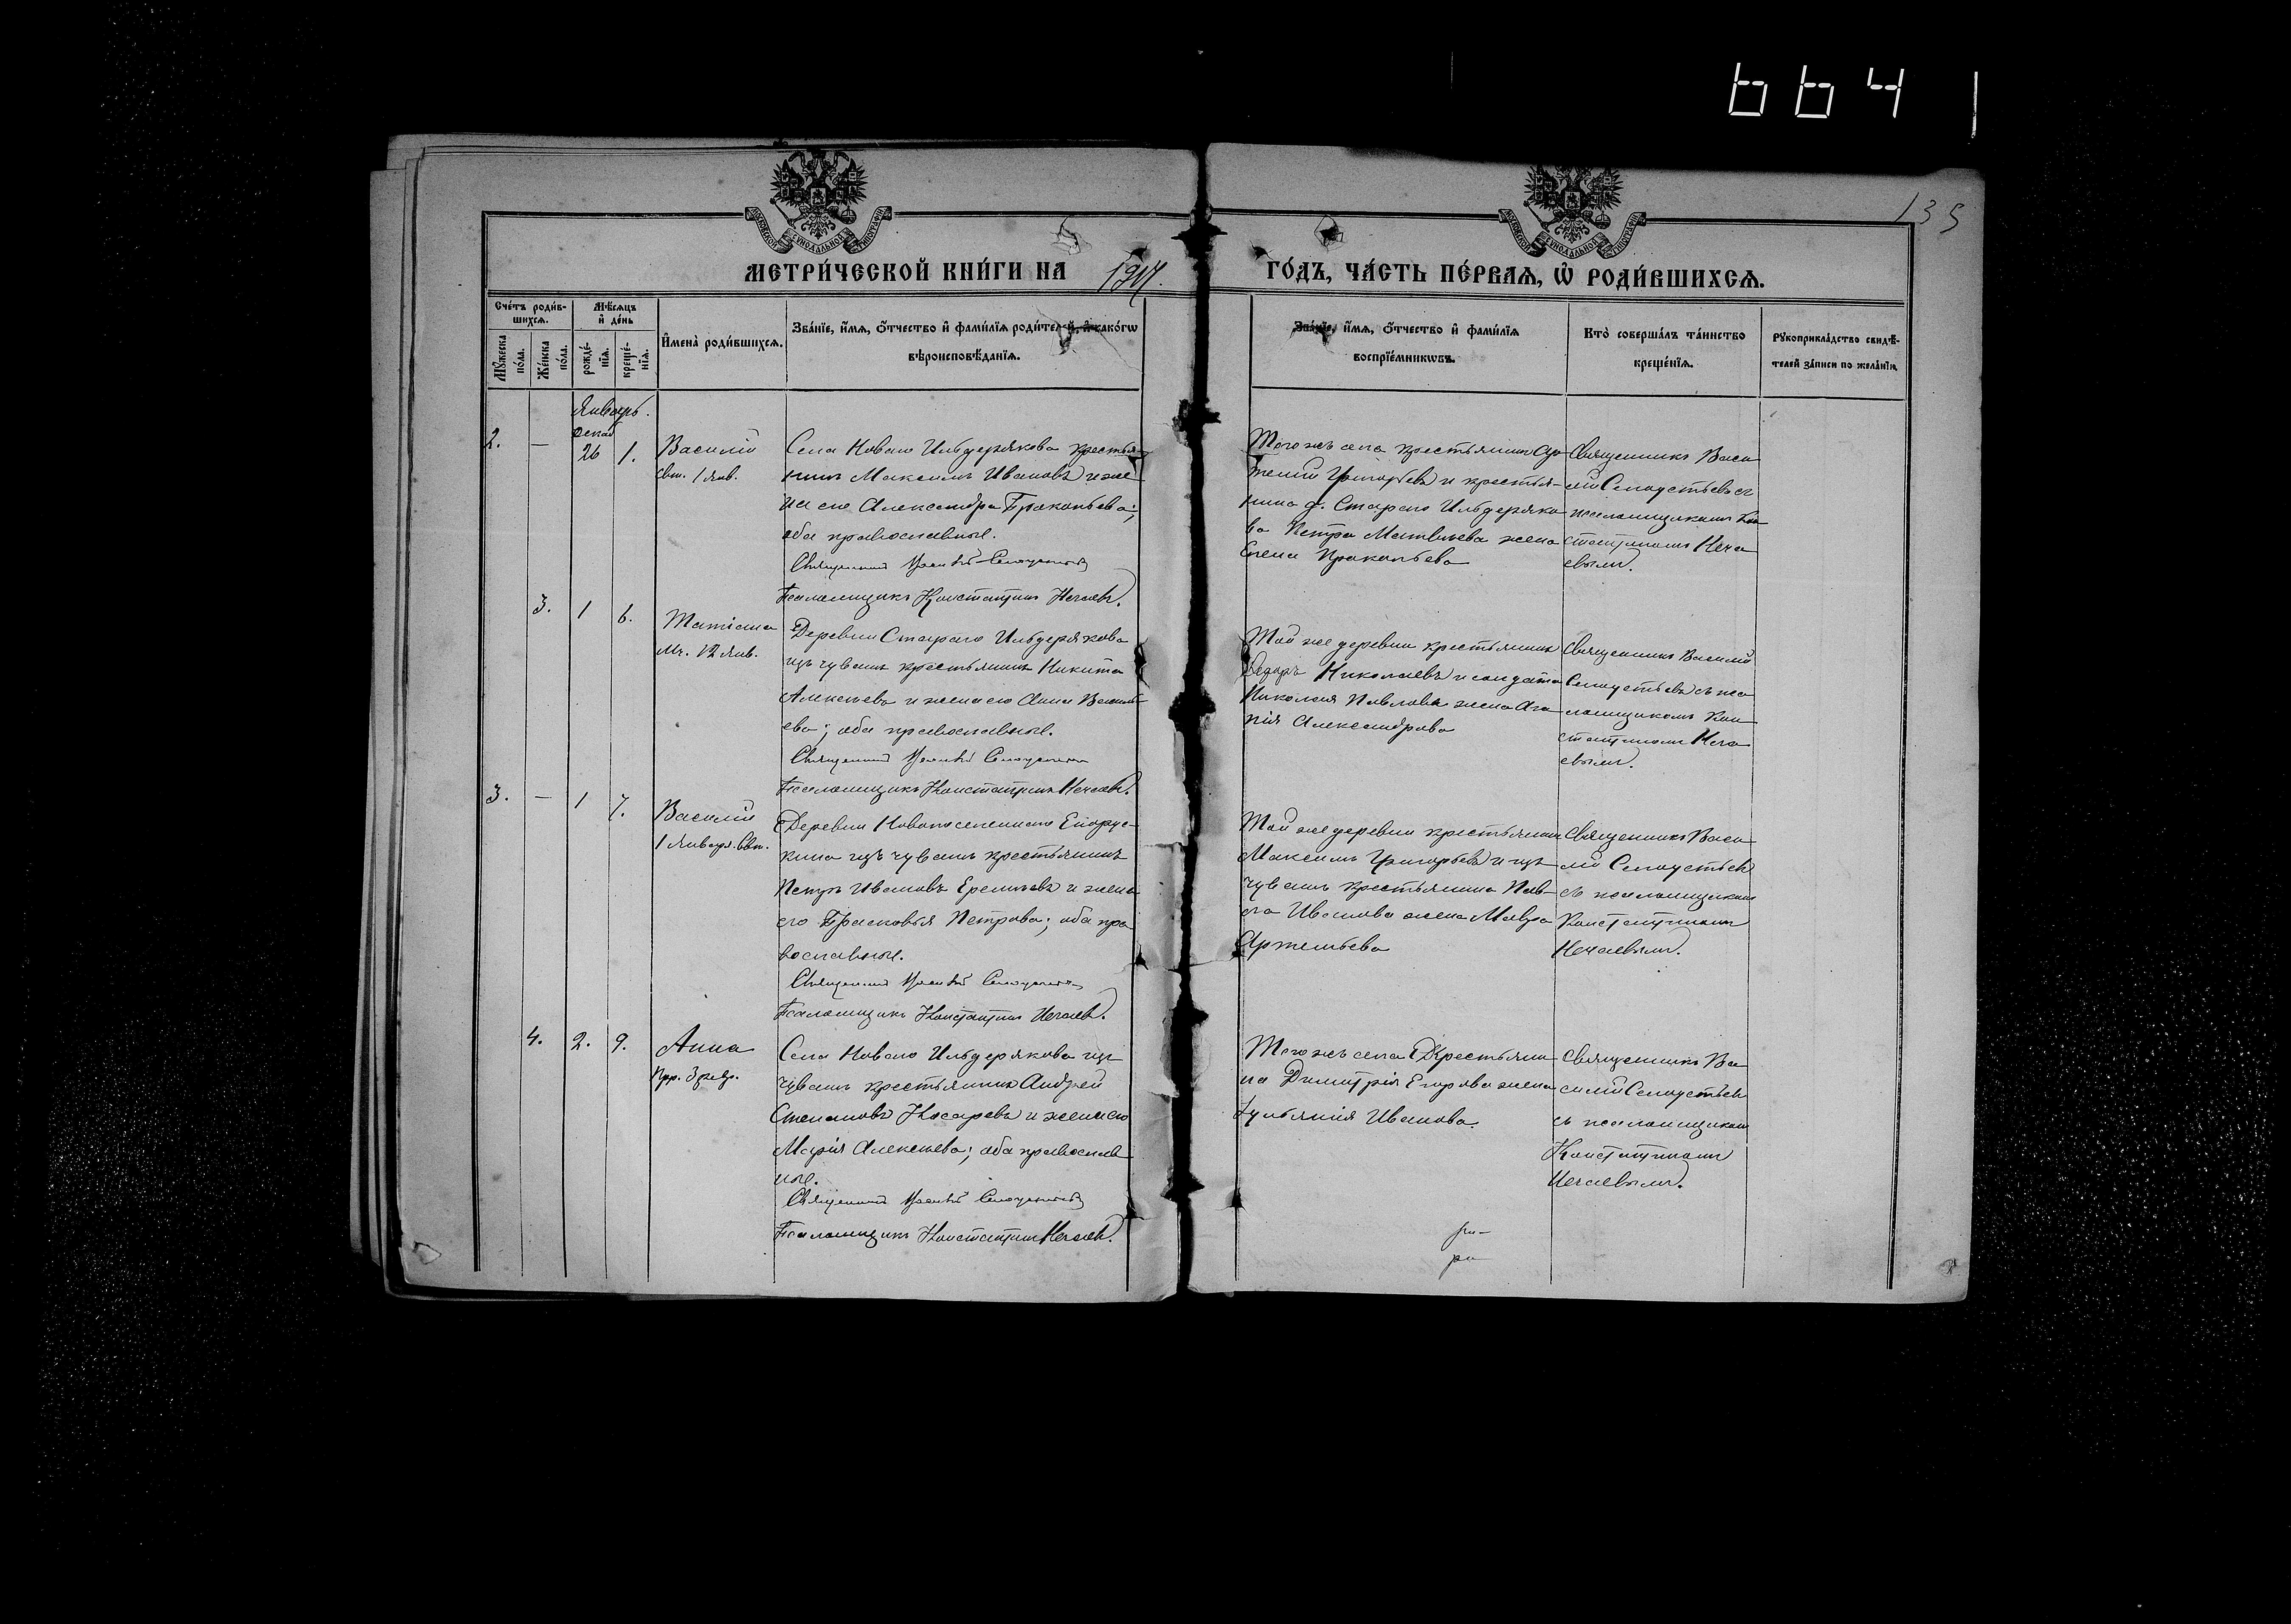 6641
135
МЕТРИ́ЧЕСКОЙ КНИ́ГИ НА 1914. ГО́ДЪ, ЧА́СТЬ ПЕ́РВАЯ, Ѡ РОДИ́ВШИХСЯ.
Сче́тъ роди́вшихся.
Мѣ́сяцъ и де́нь
Мꙋ́жеска по́ла.
Же́нска по́ла.
рожде́нїя.
креще́нїя.
И́мена̀ роди́вшихся.
Зва́нїе, и́мя, о́тчество и фами́лїя роди́телей, и како́гѡ
вѣроисповѣ́данїя.
Зва́нїе, и́мя, о́тчество и фами́лїя
воспрїе́мникѡвъ.
Кто̀ соверша́лъ та́инство
креще́нїя.
Рꙋкоприкла́дство свидѣ́-
телей за́писи по жела́нїю.
Январь.
2.
—
Декаб
26
1.
Василій
Свт. 1 Янв.
Села Новаго Ильдерякова крестья-
нинъ Максимъ Ивановъ и же
на его Александра Прокопьева;
оба православные.
Священникъ Василій
Псаломщикъ Константинъ Нечаевъ.
Того жъ села крестьянинъ Ар
темій Григорьевъ и крестья-
нина д. Стараго Ильдеряко
ва Петра Матвѣева жена
Елена Прокопьева
Священникъ Васи
лій
псаломщикомъ Кон
стантиномъ Неча
евымъ.
3.
1
6.
Татіана
Мч. 12 Янв.
Деревни Стараго Ильдерякова
изъ чувашъ крестьянинъ Никита
Алексѣевъ и жена его Анна Василь-
ева; оба православные.
Священникъ Василій
Псаломщикъ Константинъ Нечаевъ.
Той же деревни крестьянинъ
Ѳедоръ Николаевъ и солдата
Николая Павлова жена Ага
пія Александрова
Священникъ Василій
съ пса
ломщикомъ Кон
стантиномъ Неча
евымъ.
3.
—
1
7.
Василій
1 Января. Свт.
Деревни Новопоселеннаго
кина изъ чувашъ крестьянинъ
Петръ Ивановъ Еремѣевъ и жена
его Прасковья Петрова; оба пра
вославные.
Священникъ Василій
Псаломщикъ Константинъ Нечаевъ.
Той же деревни крестьянинъ
Максимъ Григорьевъ и изъ
чувашъ крестьянина Пав-
ла Иванова жена Мавра
Артемьева
Священникъ Васи
лій
съ псаломщикомъ
Константиномъ
Нечаевымъ.
4.
2.
9.
Анна
Прр. 3 февр.
Села Новаго Ильдерякова изъ
чувашъ крестьянинъ Андрей
Степановъ Косаревъ и жена его
Марія Алексѣева; оба православ
ные.
Священникъ Василій
Псаломщикъ Константинъ Нечаевъ.
Того жъ села Крестьяни
на Димитрія Егорова жена
Іульянія Иванова.
Священникъ Ва
силій
съ псаломщикомъ
Константиномъ
Нечаевымъ.